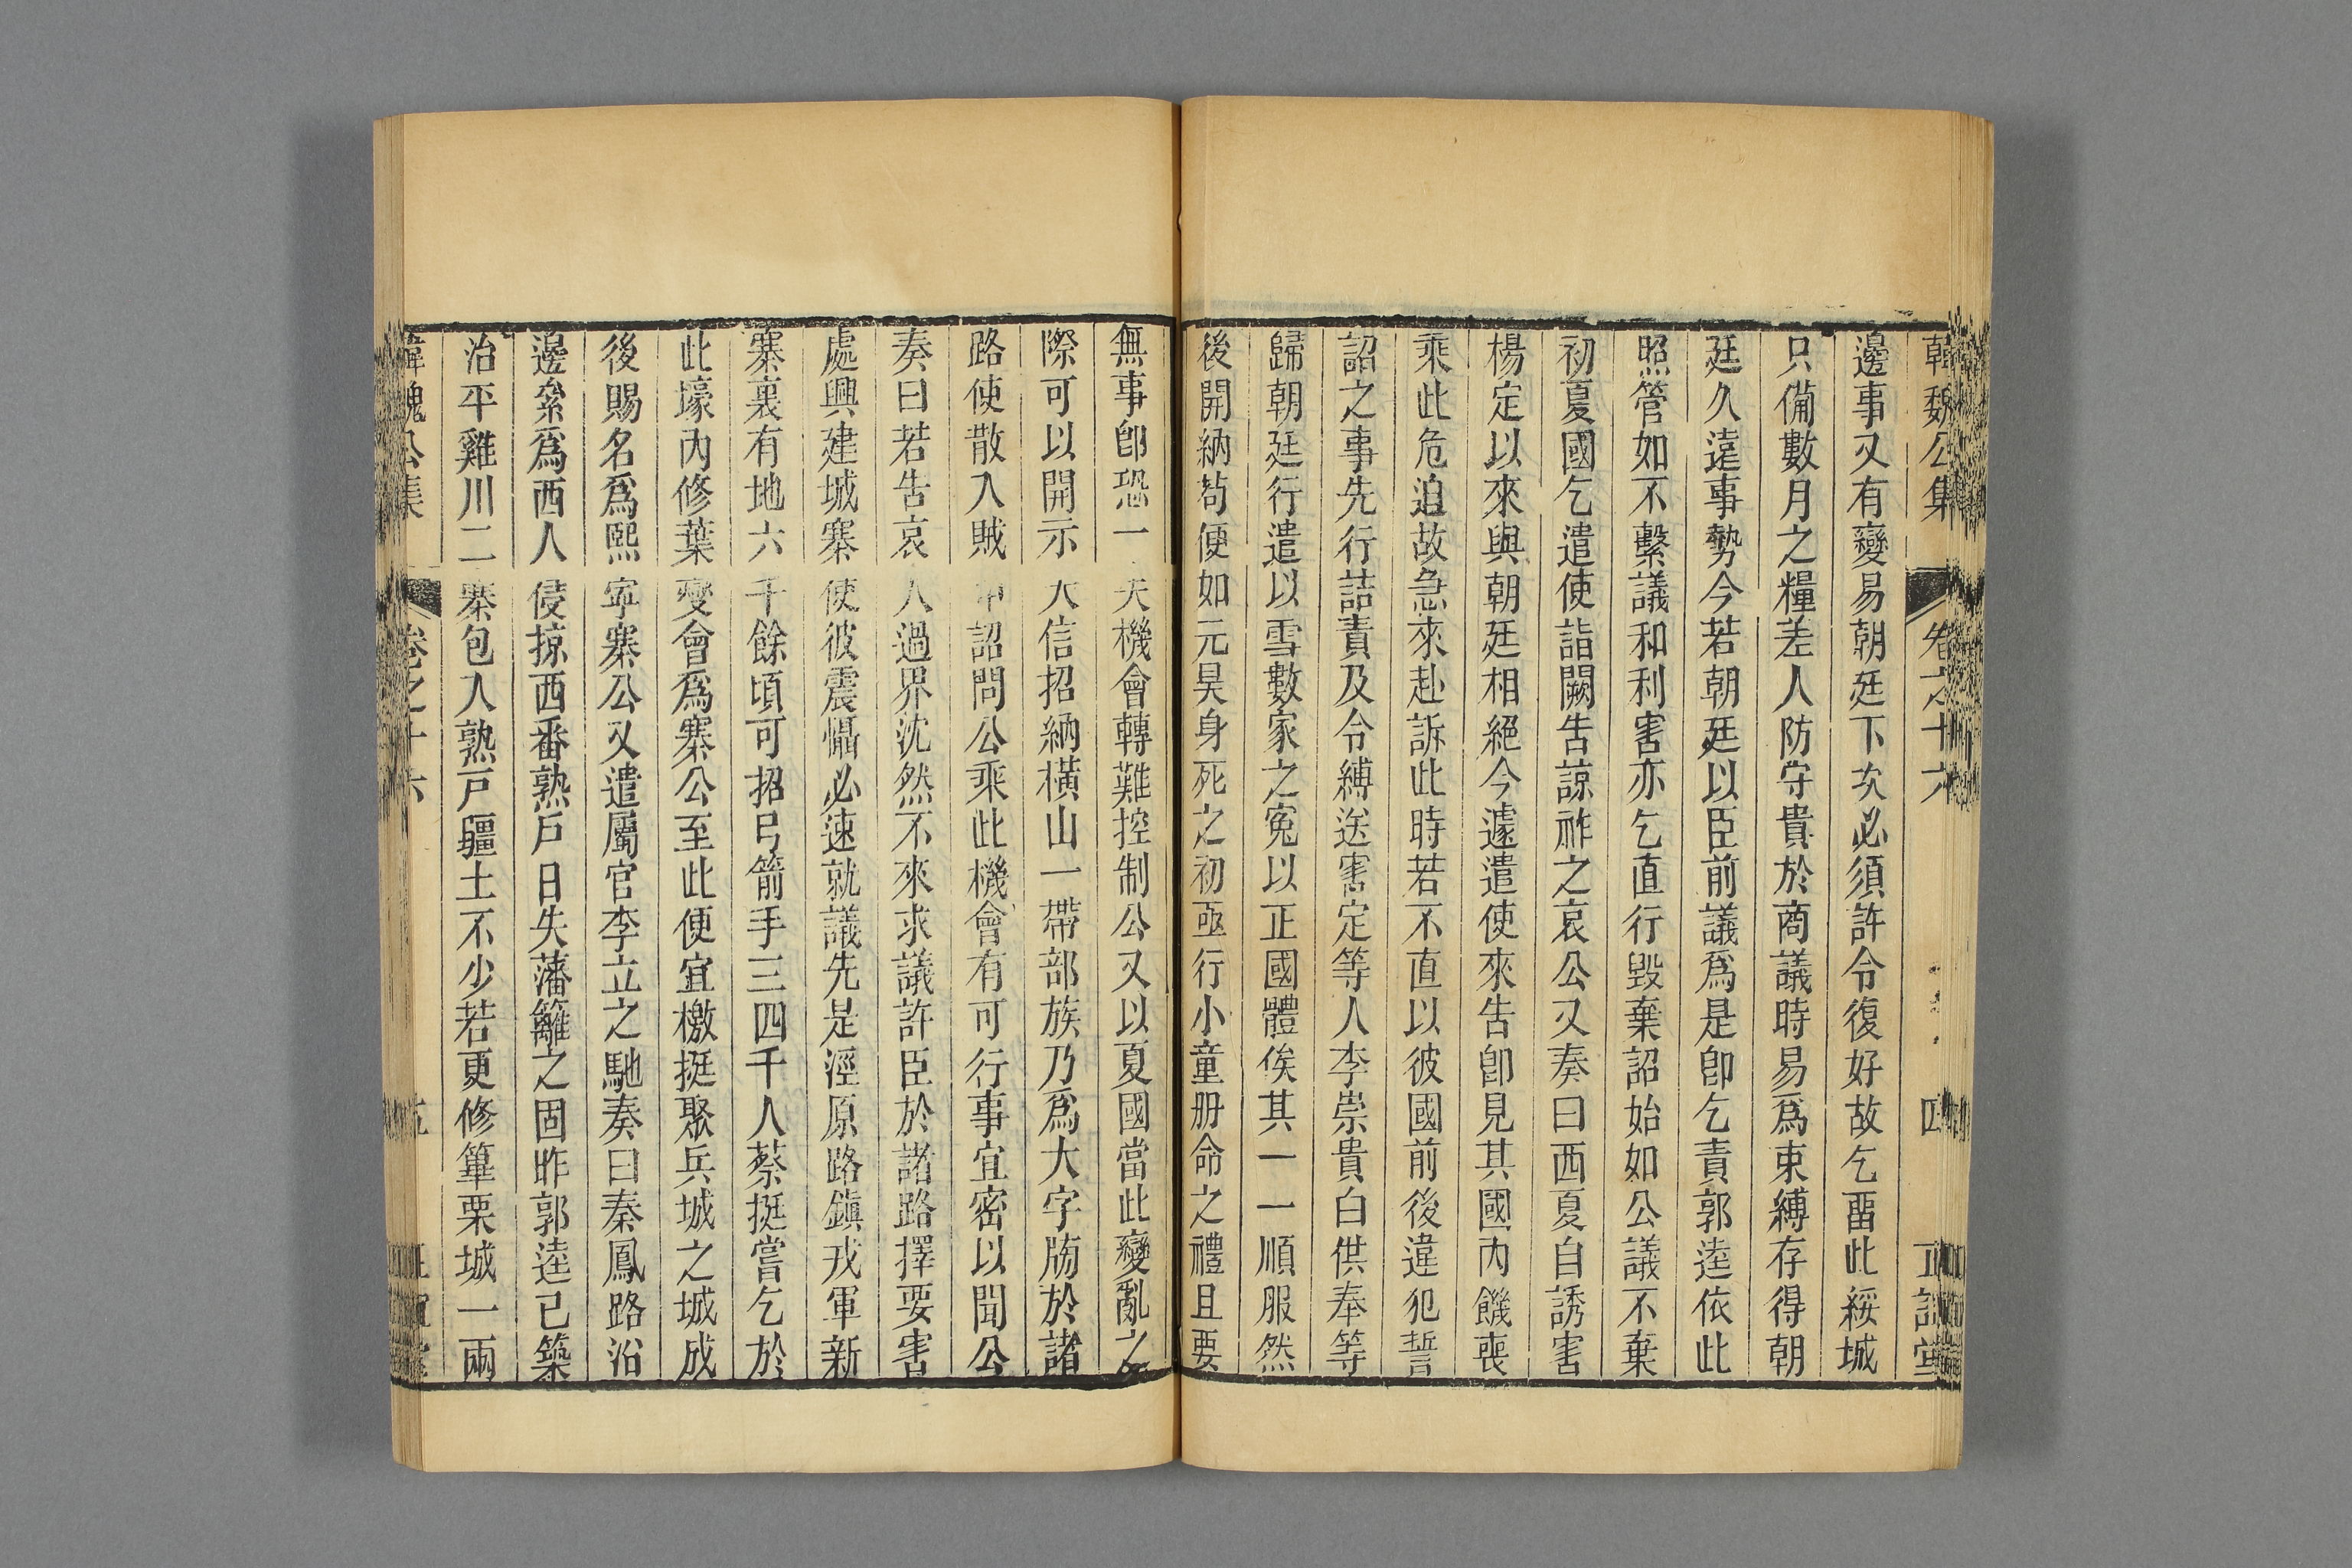 韓魏公集 卷之十六 四 正誼堂
邊事又有變易朝廷下次必須許令復好故乞畱此綏城
只備數月之糧差人防守貴於商議時易爲束縛存得朝
廷久遠事勢今若朝廷以臣前議爲是卽乞責郭逵依此
照管如不繫議和利害亦乞直行毀棄詔始如公議不棄
初夏國乞遣使詣闕告諒祚之哀公又奏曰西夏自誘害
楊定以來與朝廷相絕今遽遣使來告卽見其國內饑喪
乘此危迫故急來赴訴此時若不直以彼國前後違犯誓
詔之事先行詰責及令縛送害定等人李崇貴白供奉等
歸朝廷行遣以雪數家之寃以正國體俟其一一順服然
後開納苟便如元昊身死之初亟行小童册命之禮且要
無事卽恐一失機會轉難控制公又以夏國當此變亂之
際可以開示大信招納橫山一帶部族乃爲大字牓於諸
路使散入賊中詔問公乘此機會有可行事宜密以聞公
奏曰若告哀人過界沈然不來求議許臣於諸路擇要害
處興建城寨使彼震懾必速就議先是涇原路鎮戎軍新
寨裏有地六千餘頃可招弓箭手三四千人蔡挺嘗乞於
此壕內修葉燮會爲寨公至此便宜檄挺聚兵城之城成
後賜名爲熙寧寨公又遣屬官李立之馳奏曰秦鳳路沿
邊絫爲西人侵掠西番熟戶日失藩籬之固昨郭逵已築
治平雞川二寨包入熟戶疆土不少若更修篳栗城一兩
韓魏公集 卷之十六 五 正誼堂